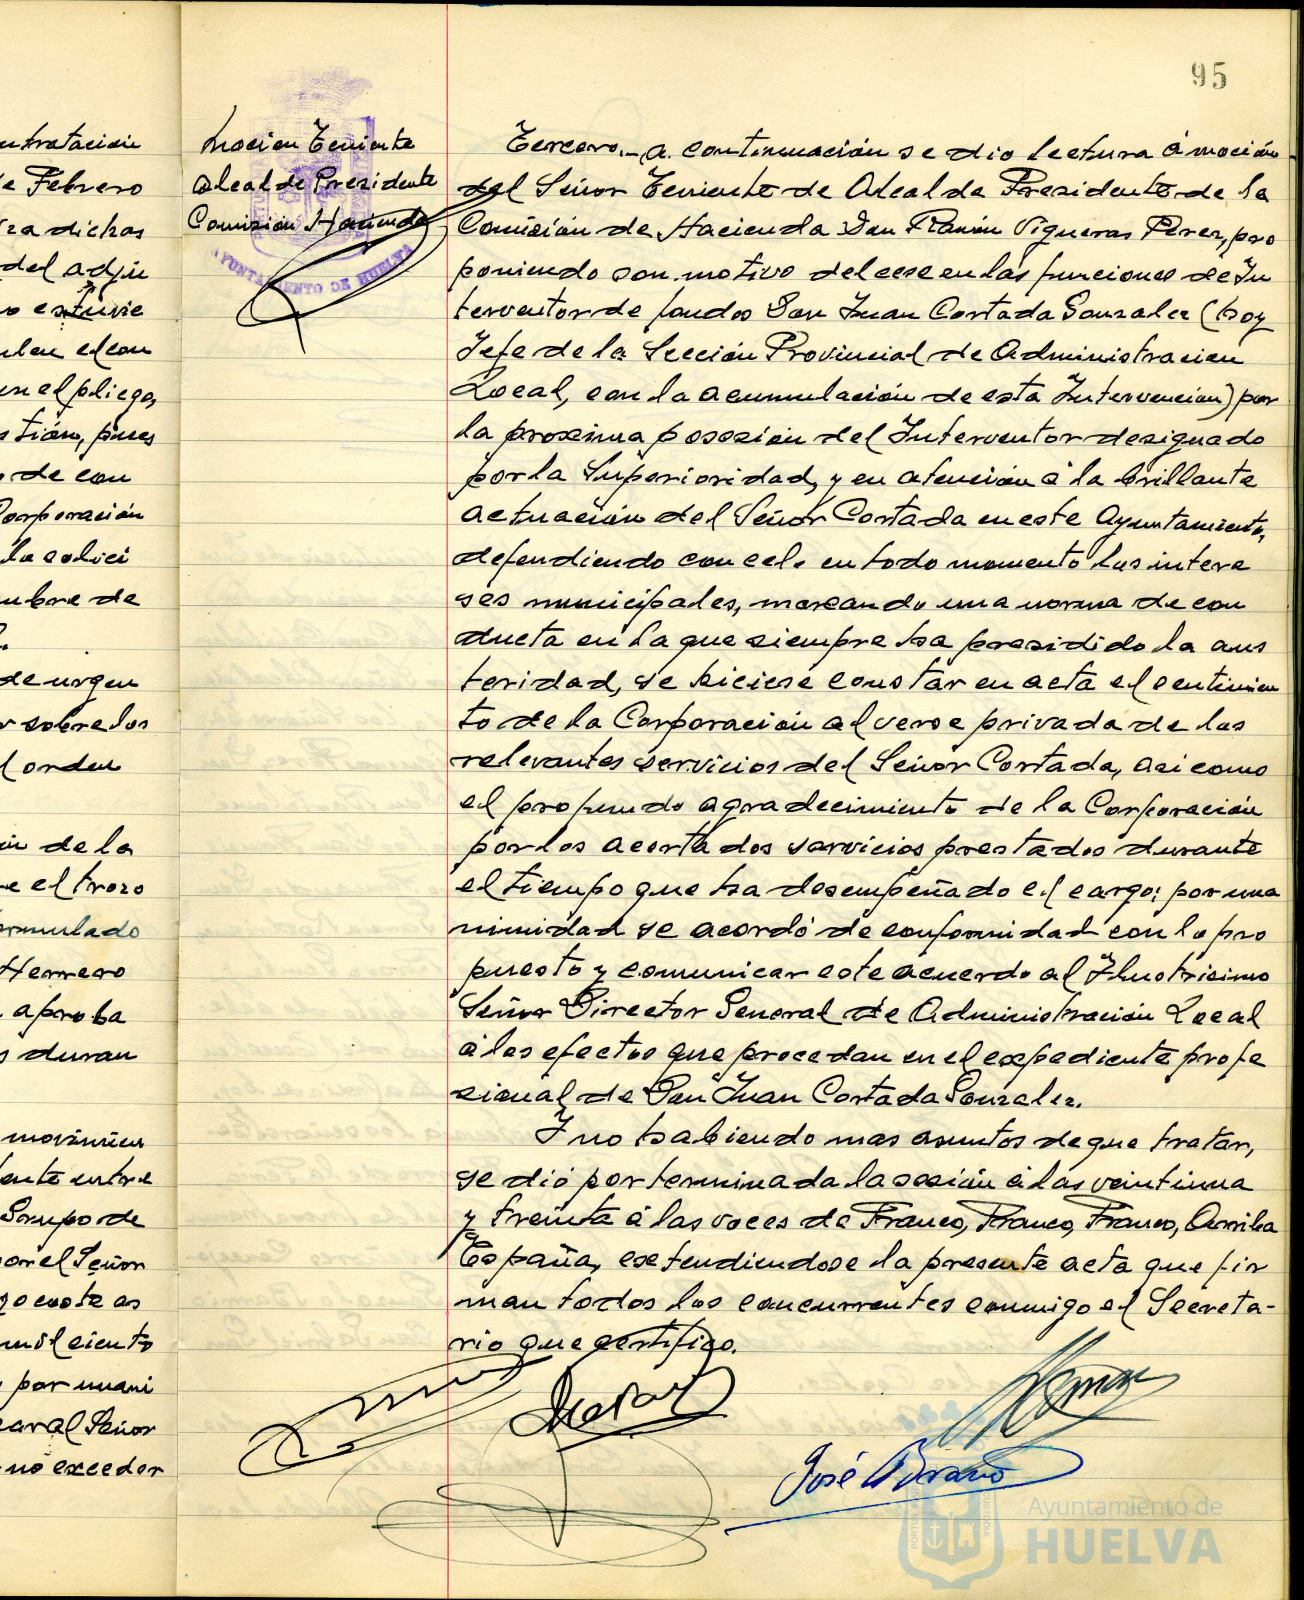 95
ntratación
e Febrero
ra dichas
del adju
o estuvie
len el con
en el pliego,
stión, pues
o de con
Corporación
la solici
mbre de
de urgen
r sobre los
l orden
ón de la
e el trozo
ormulado
Herrero
aproba
s duran
movimien
ente entre
Grupo de
por el Señor
go costeas
mil ciento
por unani
Señor
no exceder
Mocion Teniente
Alcalde Presidente
Comision Hacienda
AYUNTAMIENTO DE HUELVA
Tercero.- A continuación se dio lectura á moción
del Señor Teniente de Alcalde Presidente de la
Comisión de Hacienda Don Ramón Vigueras Perez, pro
poniendo con motivo del cese en las funciones de In
terventor de fondos Don Juan Cortada Gonzalez (hoy
Jefe de la Sección Provincial de Administracion
Local, con la acumulación de esta Intervencion) por
la proxima posesión del Interventor designado
por la Superioridad, y en atención á la brillante
actuación del Señor Cortada en este Ayuntamiento,
defendiendo con celo en todo momento los intere
ses municipales, marcando una norma de con
ducta en la que siempre ha presidido la aus
teridad, se hiciese constar en acta el sentimien
to de la Corporación al verse privada de los
relevantes servicios del Señor Cortada, asi como
el profundo agradecimiento de la Corporación
por los acertados servicios prestados durante
el tiempo que ha desempeñado el cargo; por una
nimidad se acordó de conformidad con lo pro
puesto y comunicar este acuerdo al Ilustrisimo
Señor Director General de Administración Local
á los efectos que procedan en el expediente profe
sional de Don Juan Cortada Gonzalez.
Y no habiendo mas asuntos de que tratar,
se dió por terminada la sesión á las veintiuna
y treinta á las voces de Franco, Franco, Franco, Arriba
España, extendiendose la presente acta que fir
man todos los concurrentes conmigo el Secreta-
rio que certifico.
José
Ayuntamiento de
HUELVA